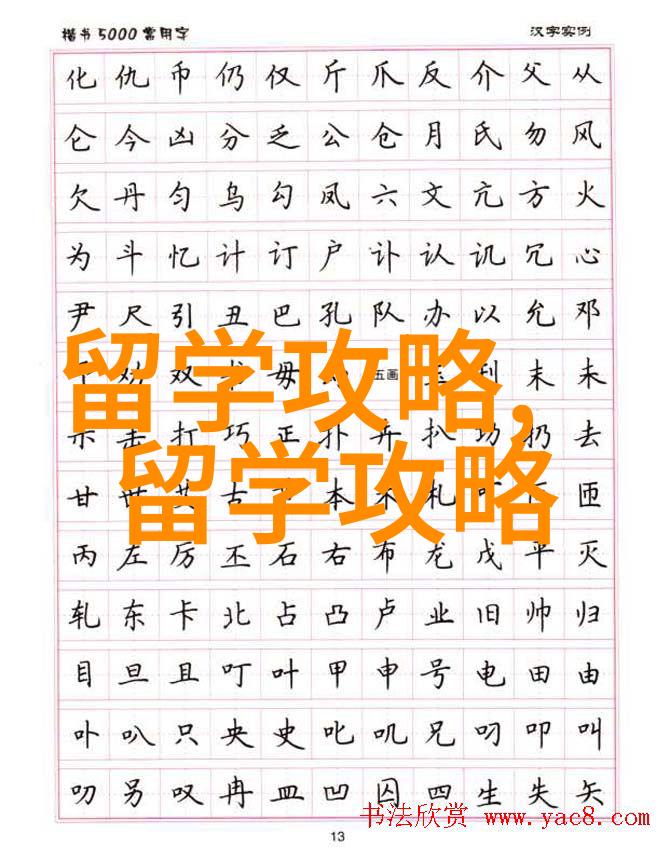 楷书5000常用字 汉字实例
化仇币仍仅斤爪反介父从
仑今凶分乏公仓月氏勿风
欠丹匀乌勾凤六文亢方火
为斗忆计订户讣认讥冗心
尹尺引丑巴孔队办以允邓
劝双书毋幻五画玉刊末未
示击打巧正扑弃扒功扔去
甘世其古本术札可匝
丙左厉丕石右布龙戊平灭
轧东卡北占凸卢业旧帅归
目旦且叮叶甲申号电田由
卟叭只央史叱叽兄叼叩叫
叻另叹冉皿凹囚四生失矢
留学攻略,
留学攻略
书法欣赏 www.yac8.com
13